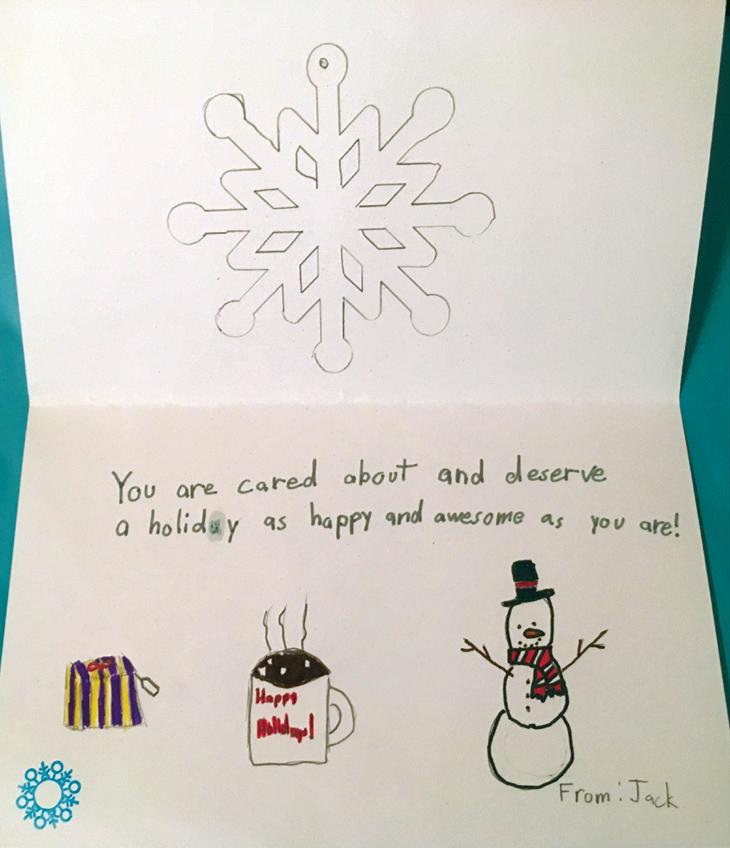 You are cared about and deserve
a holiday as happy and awesome as you are!
Happy
Holidays!
From: Jack